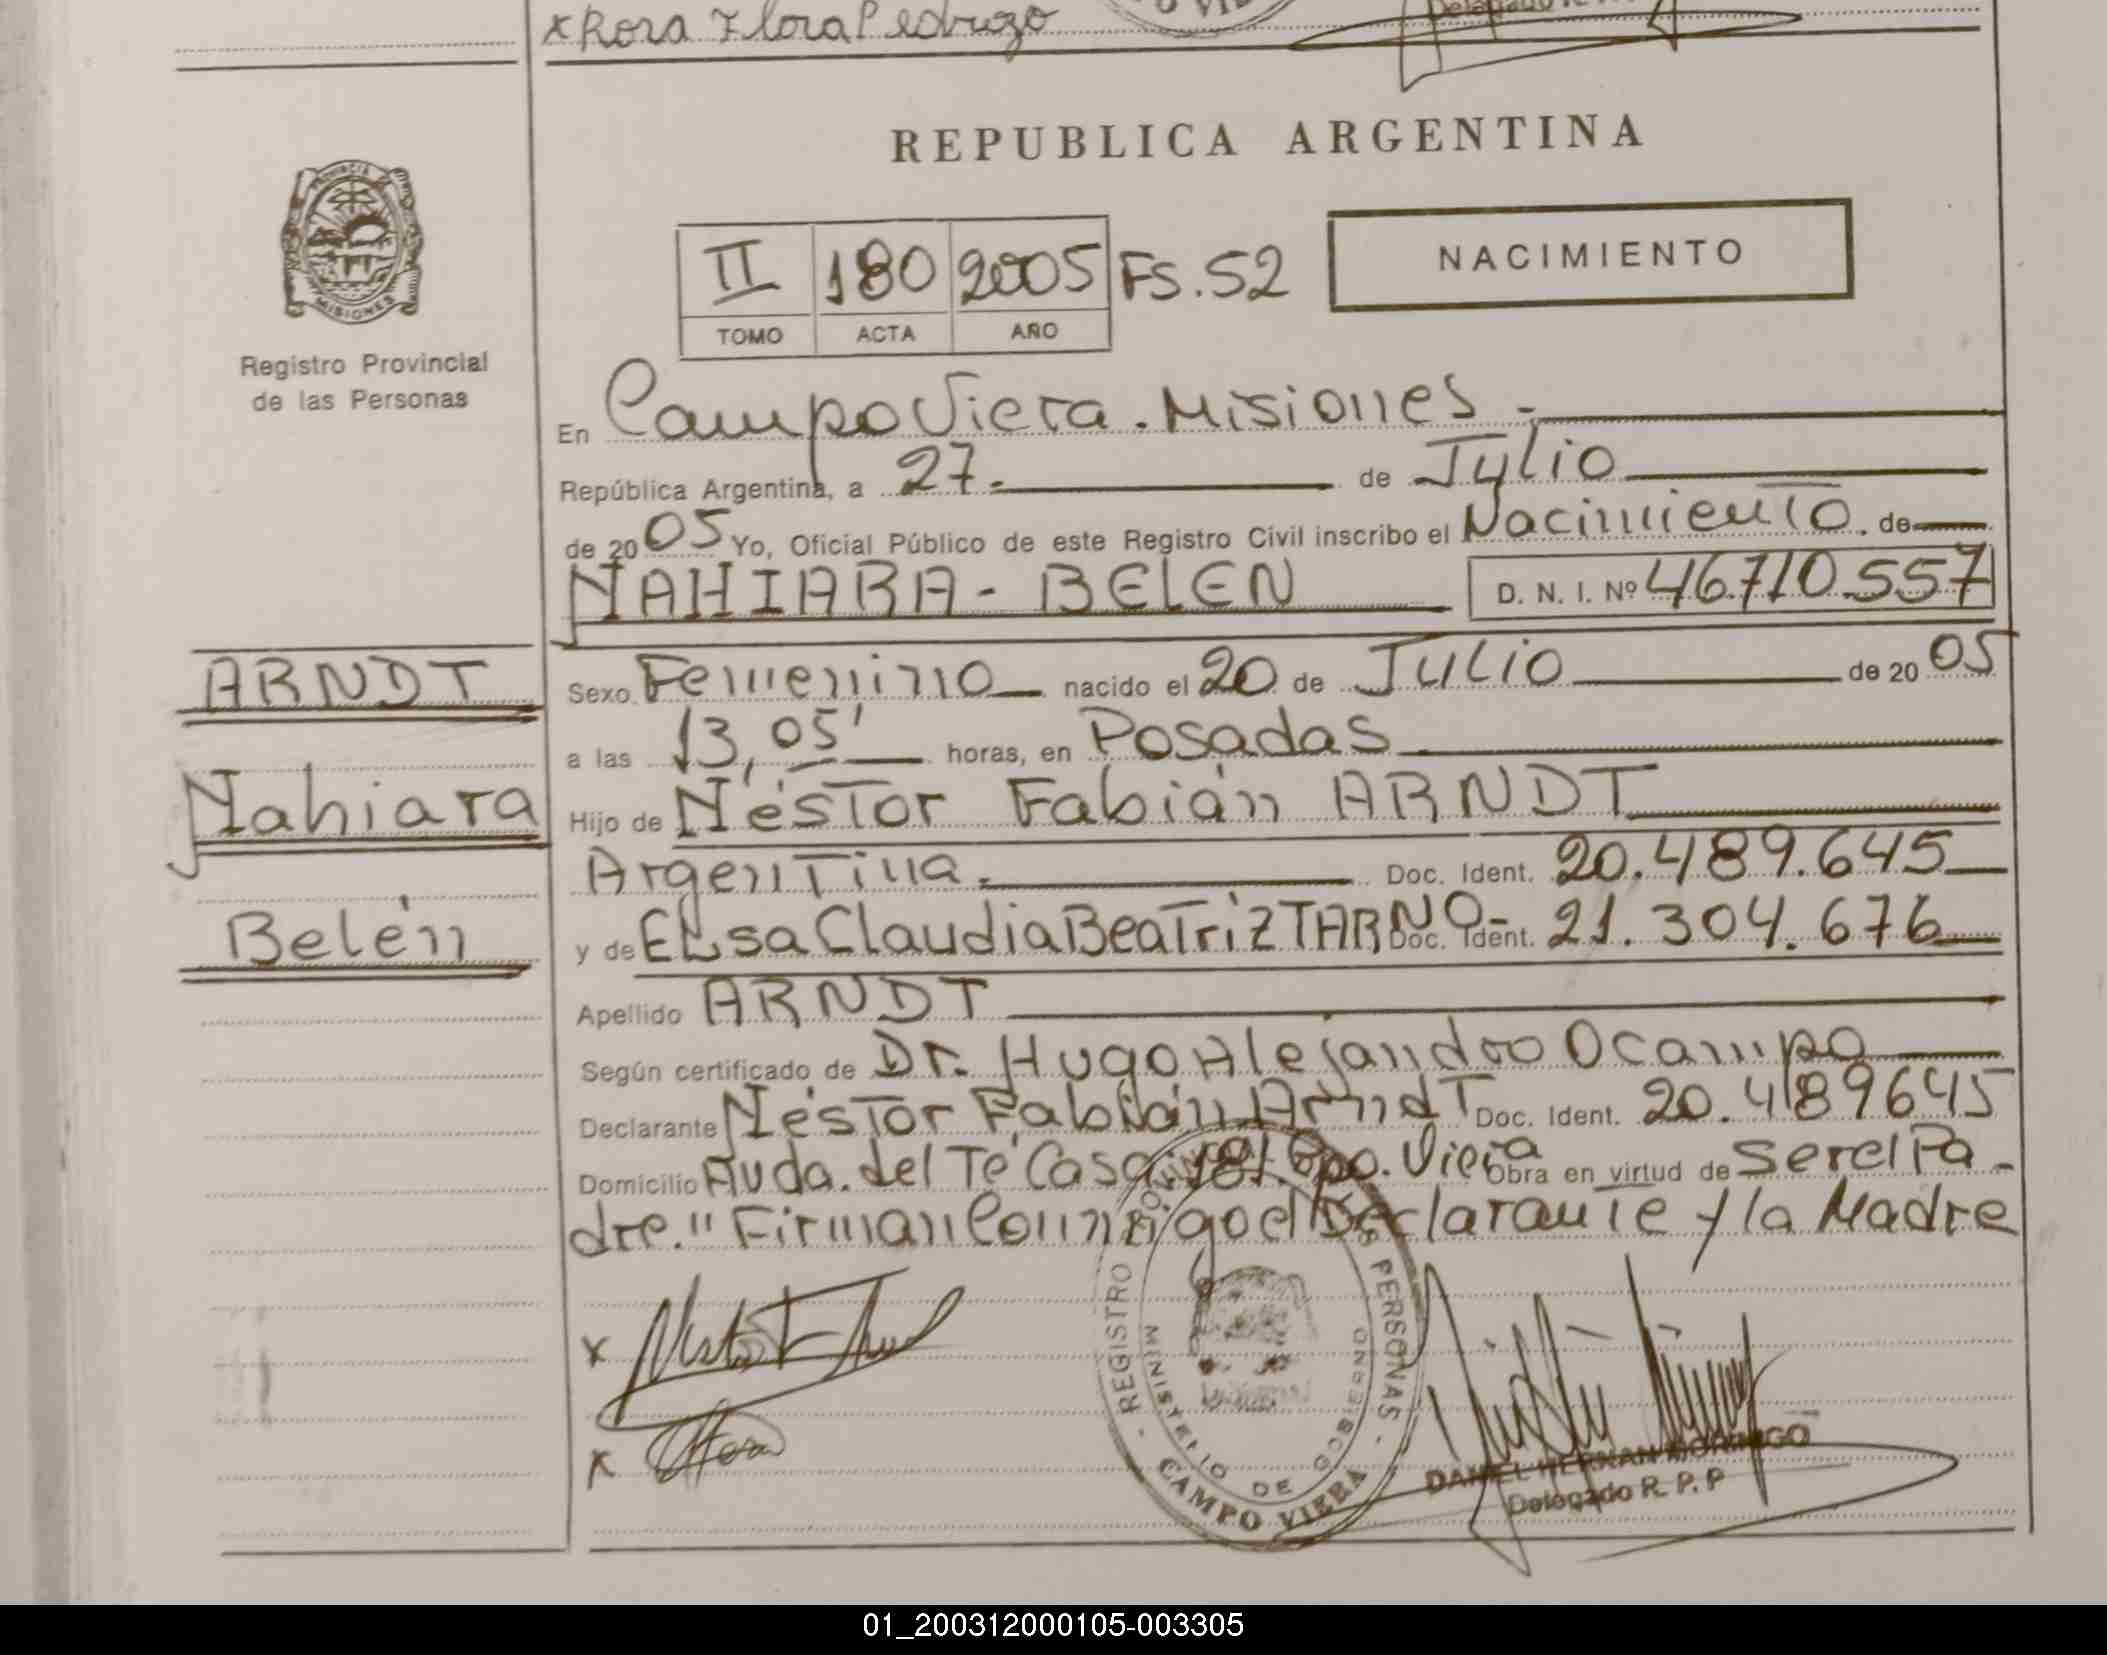 x Rosa Flora Pedrozo
REPUBLICA ARGENTINA
PROVINCIA DE MISIONES
Registro Provincial
de las Personas
II 180 2005 FS. 52
TOMO ACTA AÑO
NACIMIENTO
En Campo Viera. Misiones -
República Argentina, a 27. de Julio
de 2005 Yo, Oficial Público de este Registro Civil inscribo el Nacimiento. de
NAHIARA - BELEN D. N. I. Nº 46.710.557
ARNDT
Nahiara
Belén
Sexo Femenino nacido el 20 de Julio de 2005
a las 13,05' horas, en Posadas
Hijo de Néstor Fabián ARNDT
Argentina. Doc. Ident. 20.489.645
y de Elsa Claudia Beatriz TARNO- Doc. Ident. 21.304.676
Apellido ARNDT
Según certificado de Dr. Hugo Alejandro Ocampo
Declarante Néstor Fabián Arndt Doc. Ident. 20.489645
Domicilio Avda. del Té Casa 181. Cpo. Viera Obra en virtud de ser el Pa-
dre." Firman Conmigo el Declarante y la Madre
x
x
REGISTRO PROVINCIAL DE LAS PERSONAS
MINISTERIO DE GOBIERNO
CAMPO VIERA
DANIEL HERNAN MORINIGO
Delegado R. P. P
01_200312000105-003305